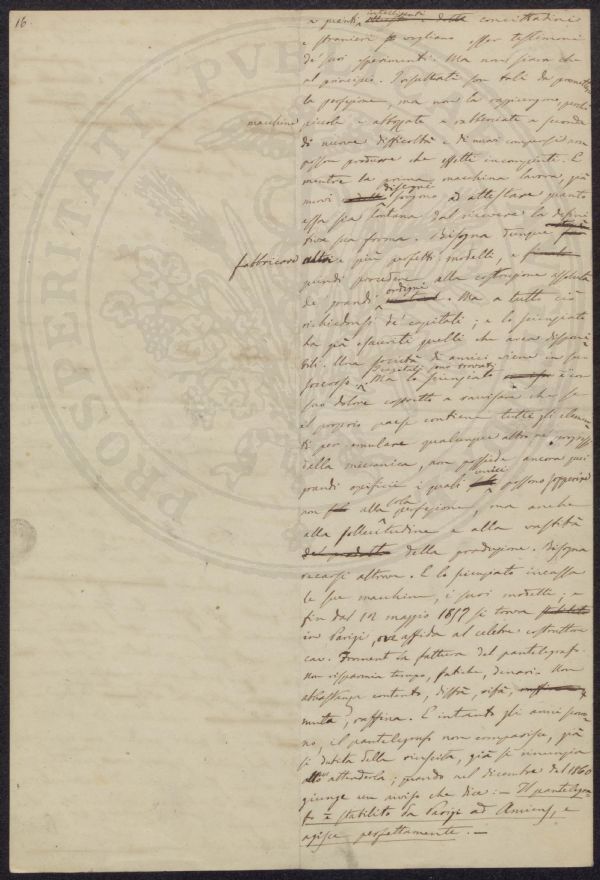 16.
e quanti intelligenti concittadini
e stranieri vogliano esser testimoni
de' suoi esperimenti. Ma non siam che
al principio. I risultati son tali da promettere
la perfezione, ma non la raggiungono, perchè
macchine piccole e abbozzate e a seconda
di nuove difficoltà e di nuovi compensi non
posson produrre che effetti incompiuti. E
mentre la prima macchina lavora, già
nuovi disegni sorgono ad attestare quanto
essa sia lontana dal ricevere la defini
tiva sua forma. Bisogna dunque
fabbricare altri e più perfetti modelli, e
quindi procedere alla costruzione assoluta
de' grandi ordigni. Ma a tutto ciò
richiedonsi de' capitali; e lo scienziato
ha già esauriti quelli che avea disponi
bili. Una società di amici viene in suo
soccorso. I capitali sono trovati
Ma lo scienziato è con
suo dolore costretto a ravvisare che se
il proprio paese contiene tutti gli elemen
ti per emulare qualunque altro ne' progressi
della meccanica, non possiede ancora quei
grandi opifici i quali unici possono sopperire
non alla sola perfezione, ma anche
alla sollecitudine e alla vastità
de' prodotti della produzione. Bisogna
recarsi altrove. E lo scienziato incassa
le sue macchine, i suoi modelli; e
fin dal 12 maggio 1857 si trova
in Parigi, ove affida al celebre costruttore
cav. Froment la fattura del pantelegrafo.
Non risparmia tempo, fatiche, denari. Non
abbastanza contento, disfà, rifà,
muta, raffina. E intanto gli anni scorro
no, il pantelegrafo non comparisce, già
si dubita della riuscita, già si rinunzia
ad attenderla; quando nel dicembre del 1860
giunge un avviso che dice: — Il pantelegra
fo è stabilito da Parigi ad Amiens, e
agisce perfettamente. —
PROSPERITATI PVBL